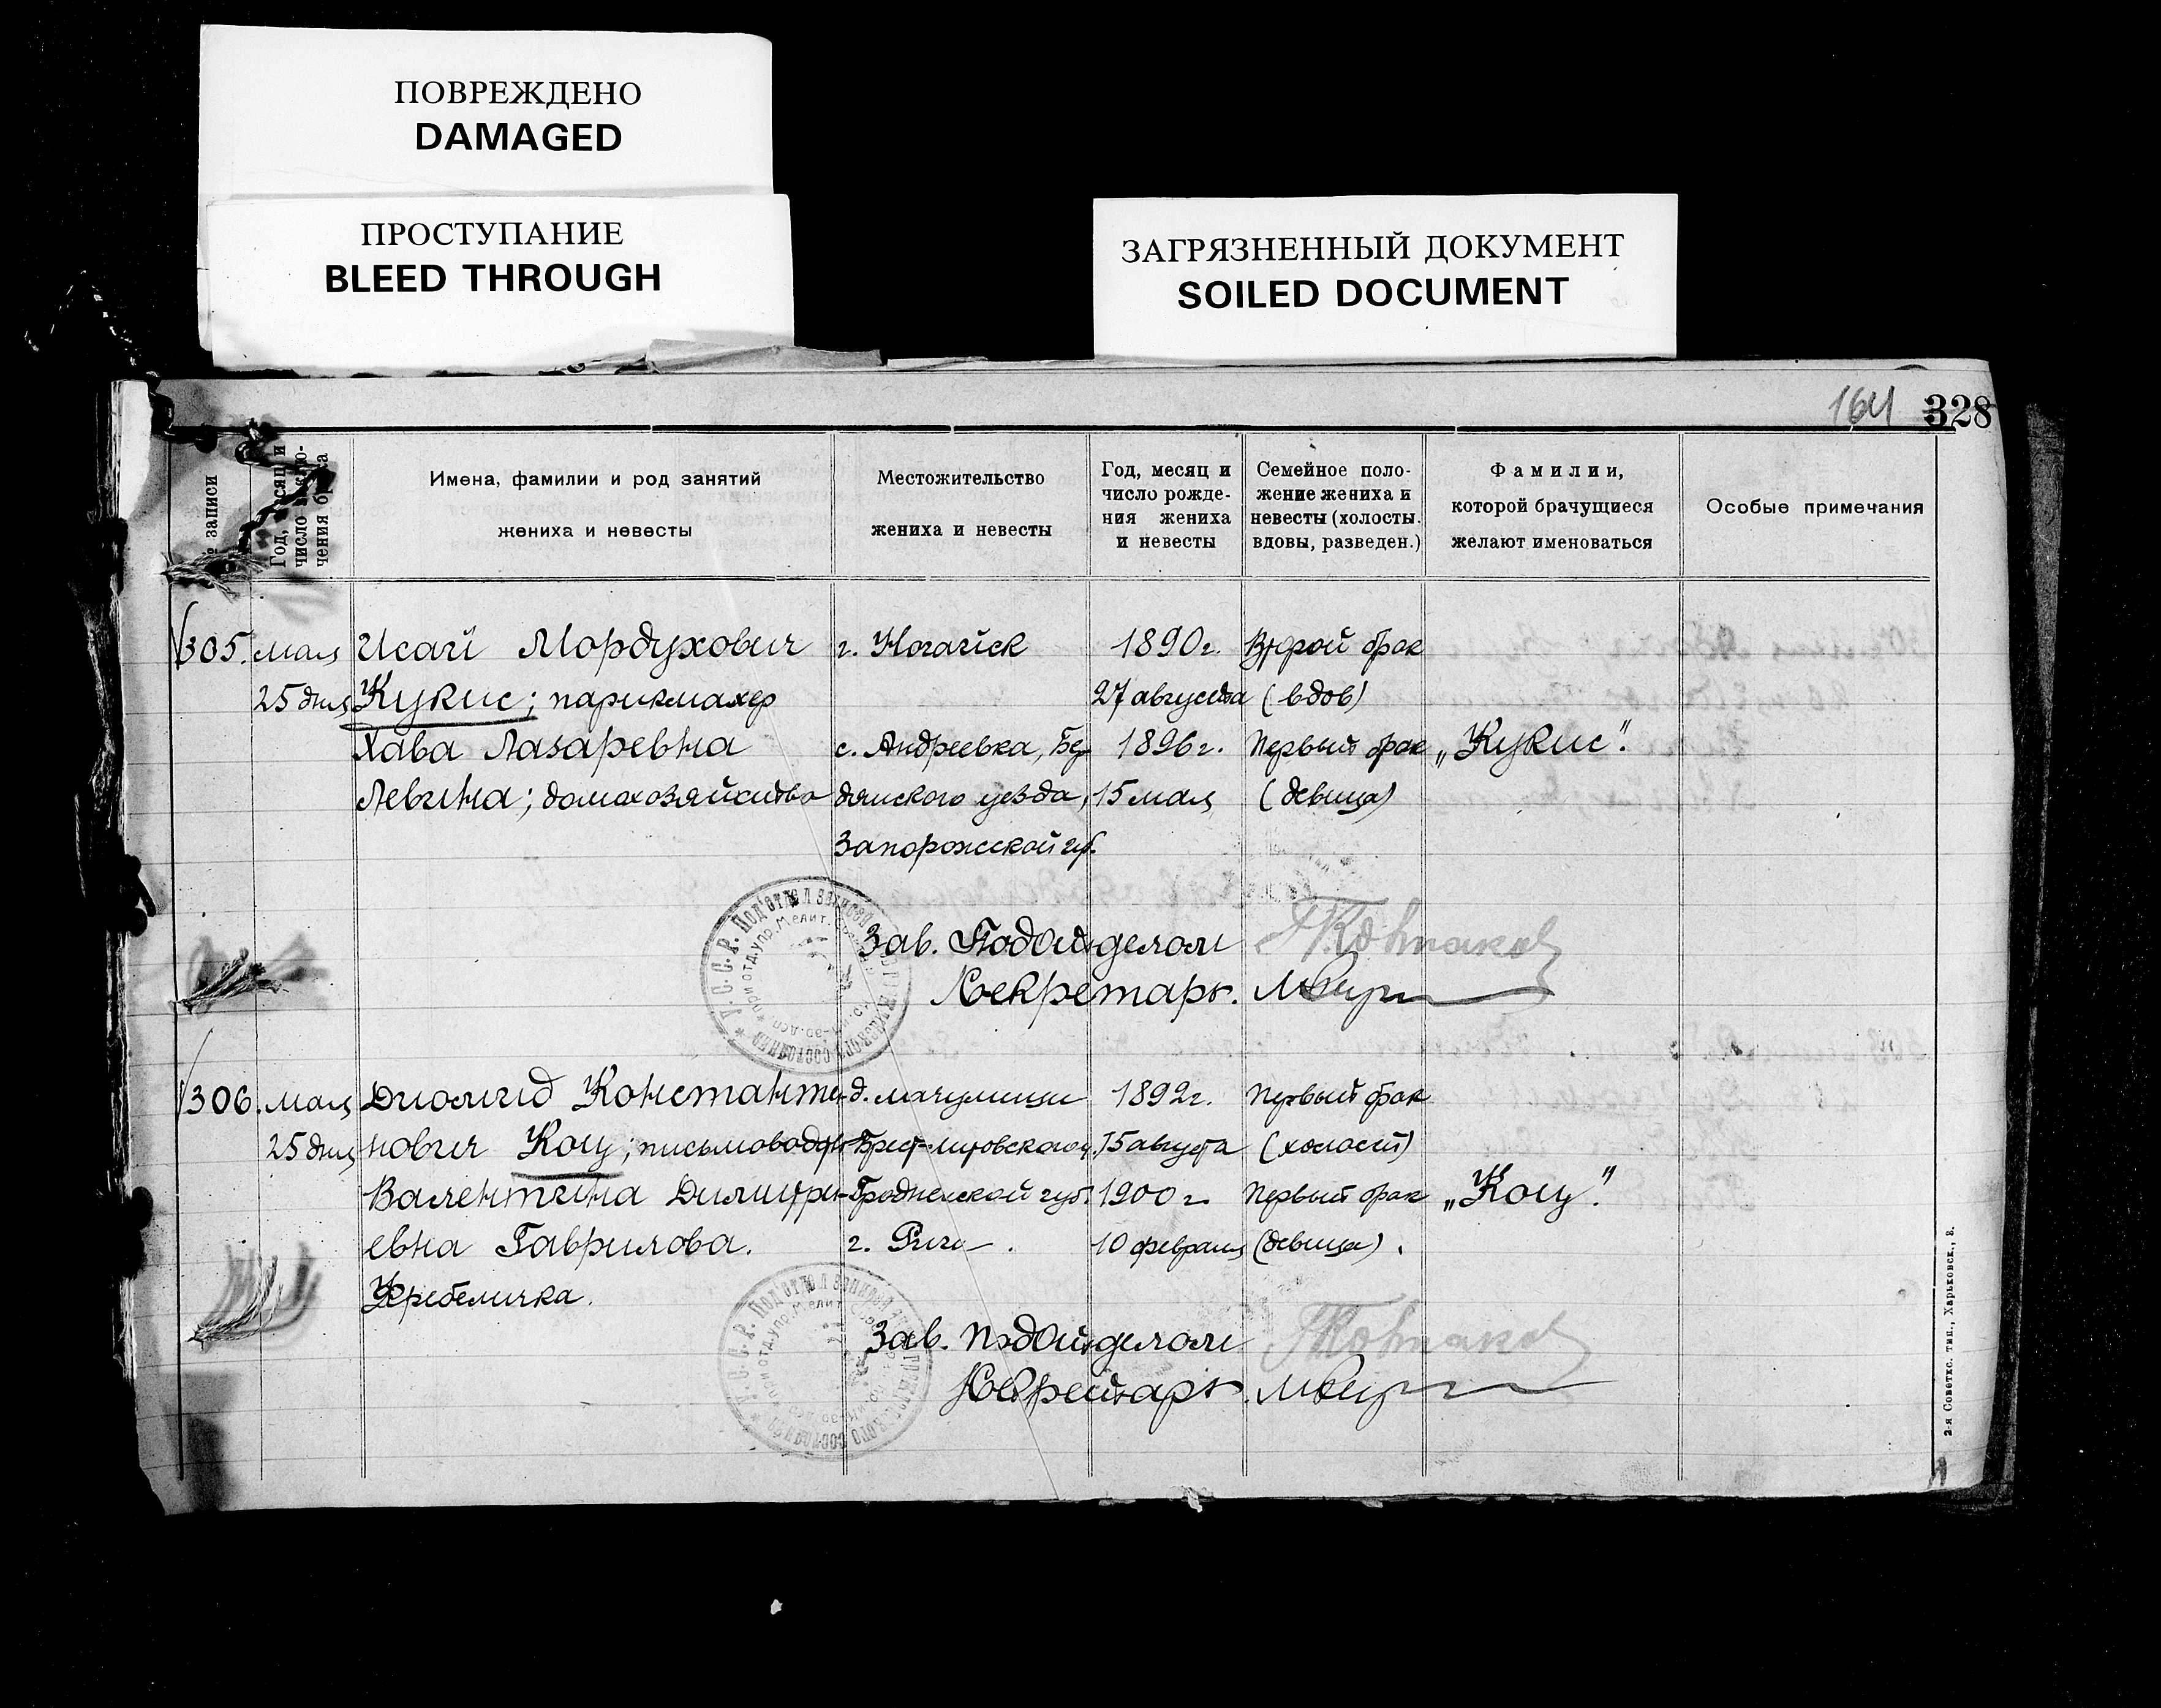 ПОВРЕЖДЕНО
DAMAGED
ПРОСТУПАНИЕ
BLEED THROUGH
ЗАГРЯЗНЕННЫЙ ДОКУМЕНТ
SOILED DOCUMENT
164 328
№ записи
Год, месяц и
число заклю-
чения брака
Имена, фамилии и род занятий
жениха и невесты
Местожительство
жениха и невесты
Год, месяц и
число рожде-
ния жениха
и невесты
Семейное поло-
жение жениха и
невесты (холосты.
вдовы, разведен.)
Фамилии,
которой брачущиеся
желают именоваться
Особые примечания
305. мая Исай Мордухович г. Ногайск 1890 г. Второй брак
25 дня Кукис; парикмахер 27 августа (вдов)
Хава Лазаревна с. Андреевка, Бер 1896 г. Первый брак „Кукис".
Левина; домохозяйство дянского уезда, 15 мая (девица)
Запорожской губ.
Зав. Подотделом
Секретарь.
306. мая Диомид Константи- д. 1892 г. Первый брак
25 дня нович Коц; письмоводит Брест-Литовского у. 15 августа (холост)
Валентина Дмитри- Гродненской губ. 1900 г Первый брак „Коц".
евна Гаврилова. г. Рига. 10 февраля (девица).
Зав. подотделом
Секретарь.
У.С.С.Р. Под'отдел записей гражданского состояния
при отд. Упр. Мелит.
2-я Советск. тип., Харьковск., 8.